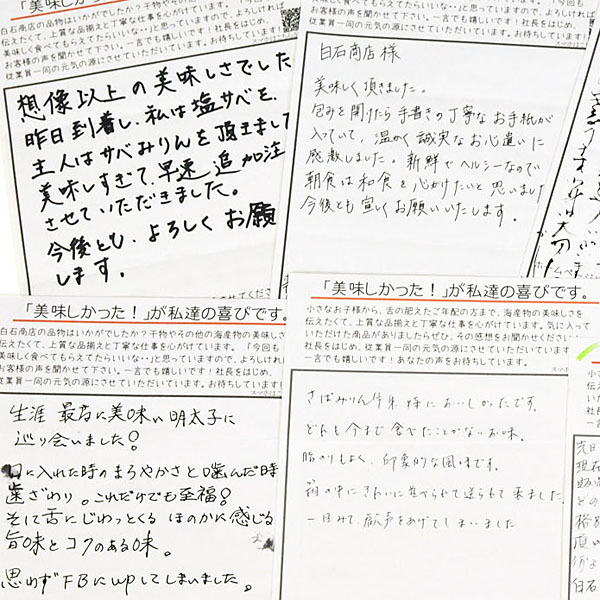 「美味しかっ
白石商店の品物はいかがでしたか?干物やその他
伝えたくて、上質な品揃えと丁寧な仕事を心が
美味しく食べてもらえてたらいいな…」と思っていますので、よろしければ
お客様の声を聞かせて下さい。一言でも嬉しいです!社長をはじめ、
従業員一同の元気の源にさせていただいています。お待ちしています!
想像以上の美味しさでした
昨日到着し、私は塩サバを、
主人はサバみりんを頂きまし
美味しすぎて、早速追加注
させていただきました。
今後とも、よろしくお願
します。
伝えたくて、上質な品揃えと丁寧な仕事を心がけています。「今回も
美味しく食べてもらえてたらいいな…」と思っていますので、よろしければ
お客様の声を聞かせて下さい。一言でも嬉しいです!社長をはじめ、
従業員一同の元気の源にさせていただいています。お待ちしています!
白石商店 様
美味しく頂きました。
包みを開けたら手書きの丁寧なお手紙が
入っていて、温かく誠実なお心遣いに
感激しました。新鮮でヘルシーなので
朝食は和食を心がけたいと思いました
今後とも宜しくお願いいたします。
「美味しかった!」が私達の喜びです。
白石商店の品物はいかがでしたか?干物やその他の海産物の美味しさを
伝えたくて、上質な品揃えと丁寧な仕事を心がけています。「今回も
美味しく食べてもらえてたらいいな…」と思っていますので、よろしければ
お客様の声を聞かせて下さい。一言でも嬉しいです!社長をはじめ、
従業員一同の元気の源にさせていただいています。お待ちしています!
生涯 最高に美味い明太子に
巡り会いました!
口に入れた時のまろやかさと噛んだ時
歯ざわり。これだけでも至福!
そして舌にじわっとくる ほのかに感じる
旨味とコクのある味。
思わずFBにupしてしまいました。
「美味しかった!」が私達の喜びです。
小さなお子様から、舌の肥えたご年配の方まで、海産物の美味しさを
伝えたくて、上質な品揃えと丁寧な仕事を心がけています。気に入って
いただけた商品がありましたらぜひ、その感想をお聞かせください
社長をはじめ、従業員一同の元気の源にさせていただいています。
一言でも嬉しいです!あなたの声をお待ちしています。
さばみりん 特においしかったです。
どれも今まで食べたことがないお味。
脂のりもよく、印象的な風味です。
箱の中にきれいに並べられて送られて来ました。
一目みて、歓声をあげてしまいました